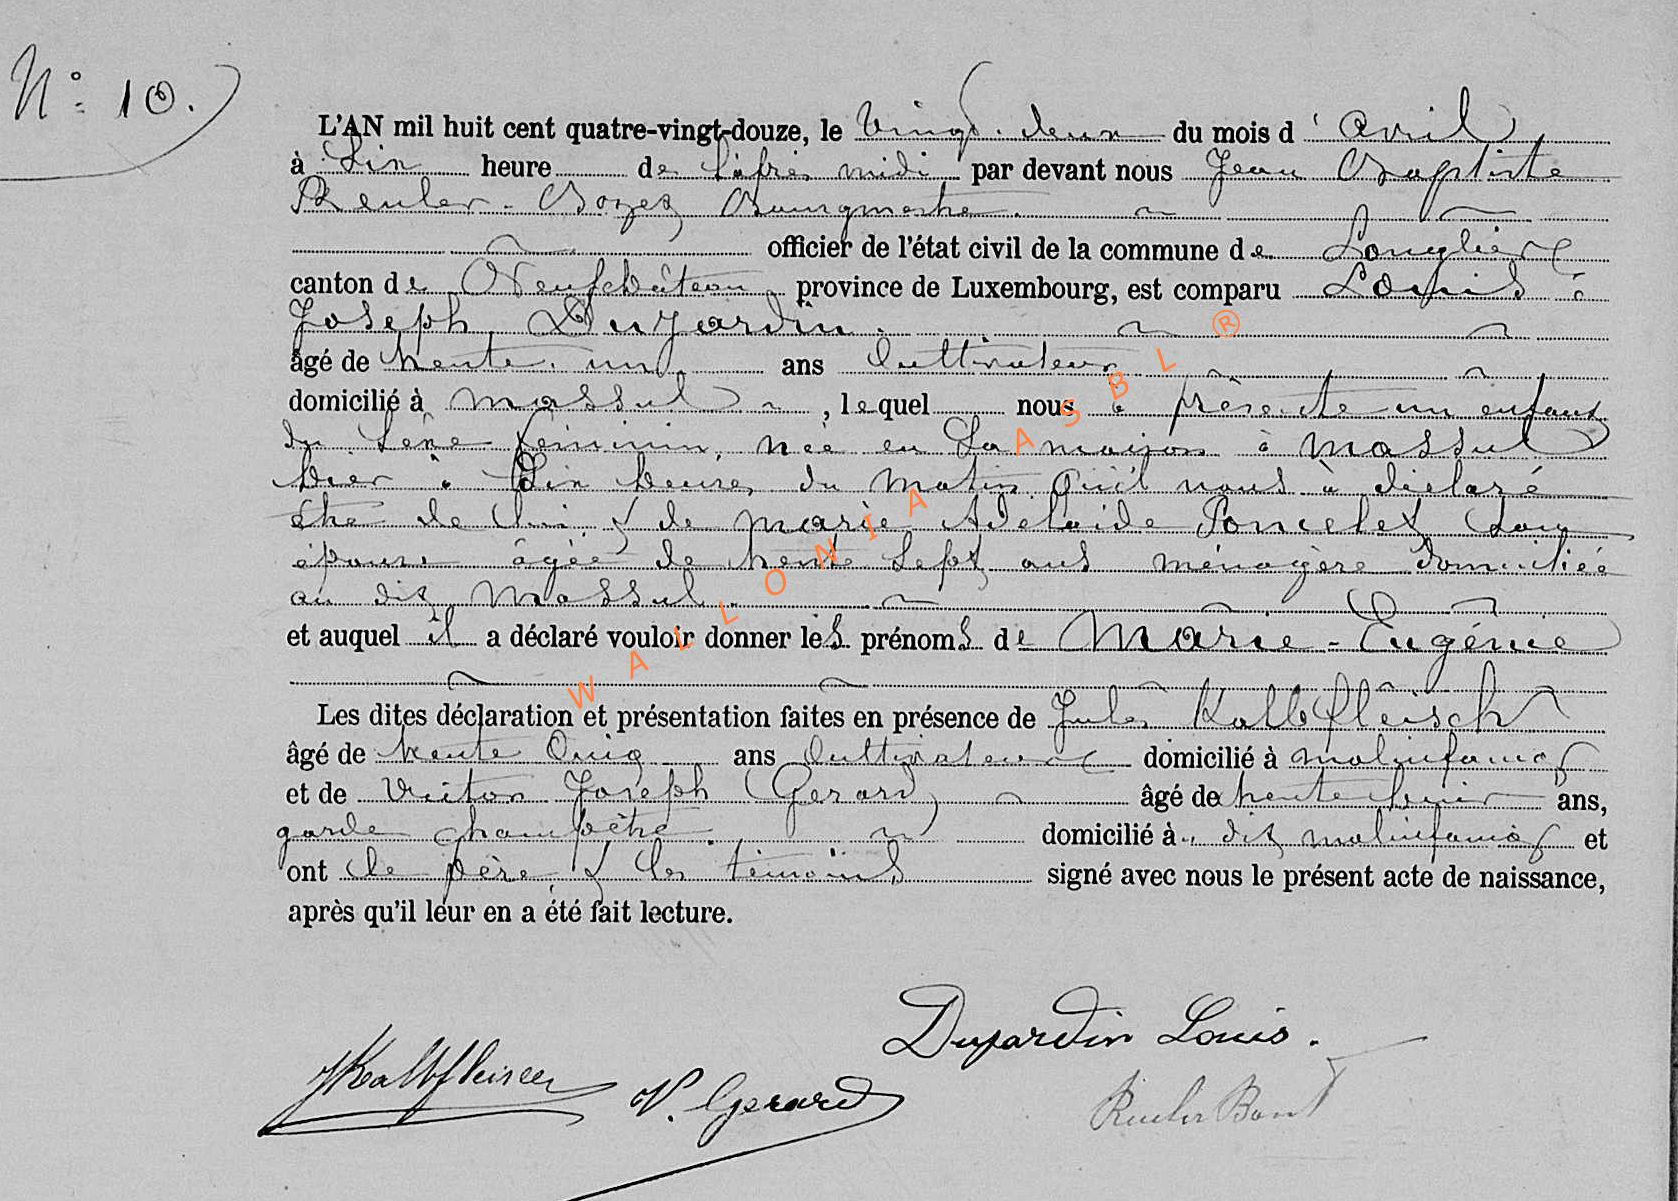 N° 10.
L'AN mil huit cent quatre-vingt-douze, le vingt-deux du mois d'avril
à Six heure de l'après midi par devant nous Jean Baptiste
Reuler Bourgmestre
officier de l'état civil de la commune de Longlier
canton de Neufchâteau province de Luxembourg, est comparu Louis
Joseph Dujardin
âgé de trente un ans Cultivateur
domicilié à Massul, lequel nous a présenté un enfant
du Sexe féminin, née en Sa maison à Massul
hier à heures du matin qu'il nous à déclaré
être de lui & de Marie Adelaïde Poncelet Son
épouse âgée de trente Sept ans ménagère domiciliée
au dit Massul
et auquel il a déclaré vouloir donner leS prénomS de Marie-Eugénie
Les dites déclaration et présentation faites en présence de Jules Kalbfleisch
âgé de trente Cinq ans Cultivateur domicilié à Molinfaing
et de Victor Joseph Gerard âgé de trente ans,
garde champêtre domicilié à dit Molinfaing et
ont le père & les témoins signé avec nous le présent acte de naissance,
après qu'il leur en a été fait lecture.
Dujardin Louis.
V. Gerard
WALLONIA ASBL ®